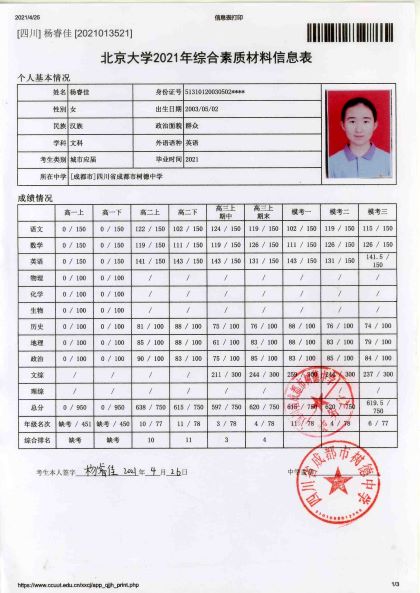 2021/4/25 信息表打印
[四川] 杨睿佳 [2021013521]
北京大学2021年综合素质材料信息表
个人基本情况
姓名 杨睿佳 身份证号 51310120030502****
性别 女 出生日期 2003/05/02
民族 汉族 政治面貌 群众
学科 文科 外语语种 英语
考生类别 城市应届 毕业时间 2021
所在中学 [成都市]四川省成都市树德中学
成绩情况
高一上 高一下 高二上 高二下 高三上期中 高三上期末 模考一 模考二 模考三
语文 0 / 150 0 / 150 122 / 150 102 / 150 124 / 150 119 / 150 102 / 150 119 / 150 115 / 150
数学 0 / 150 0 / 150 119 / 150 111 / 150 119 / 150 126 / 150 111 / 150 126 / 150 126 / 150
英语 0 / 150 0 / 150 141 / 150 143 / 150 143 / 150 131 / 150 143 / 150 131 / 150 141.5 / 150
物理 0 / 100 0 / 100 / / / / / / /
化学 0 / 100 0 / 100 / / / / / / /
生物 0 / 100 0 / 100 / / / / / / /
历史 0 / 100 0 / 100 81 / 100 88 / 100 75 / 100 76 / 100 88 / 100 76 / 100 74 / 100
地理 0 / 100 0 / 100 85 / 100 88 / 100 61 / 100 83 / 100 88 / 100 83 / 100 79 / 100
政治 0 / 100 0 / 100 90 / 100 83 / 100 75 / 100 85 / 100 83 / 100 85 / 100 84 / 100
文综 / / / / 211 / 300 244 / 300 259 / 300 244 / 300 237 / 300
理综 / / / / / / / /
总分 0 / 950 0 / 950 638 / 750 615 / 750 597 / 750 620 / 750 615 / 750 620 / 750 619.5 / 750
年级名次 缺考 / 451 缺考 / 450 10 / 77 11 / 78 3 / 78 4 / 78 11 / 78 4 / 78 6 / 77
综合排名 缺考 缺考 10 11 3 4
考生本人签字 杨睿佳 2021 年 4 月 26 日
四川省成都市树德中学
https://www.ccuut.edu.cn/xxcj/app_qjh_print.php 1/3